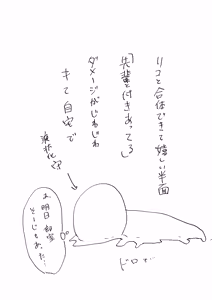 リコと合体できて嬉しい半面
「先輩と付きあってる」
ダメージがじわじわ
キて自宅で
液状化する
あ明日部室
そーじもあた…
ドロで